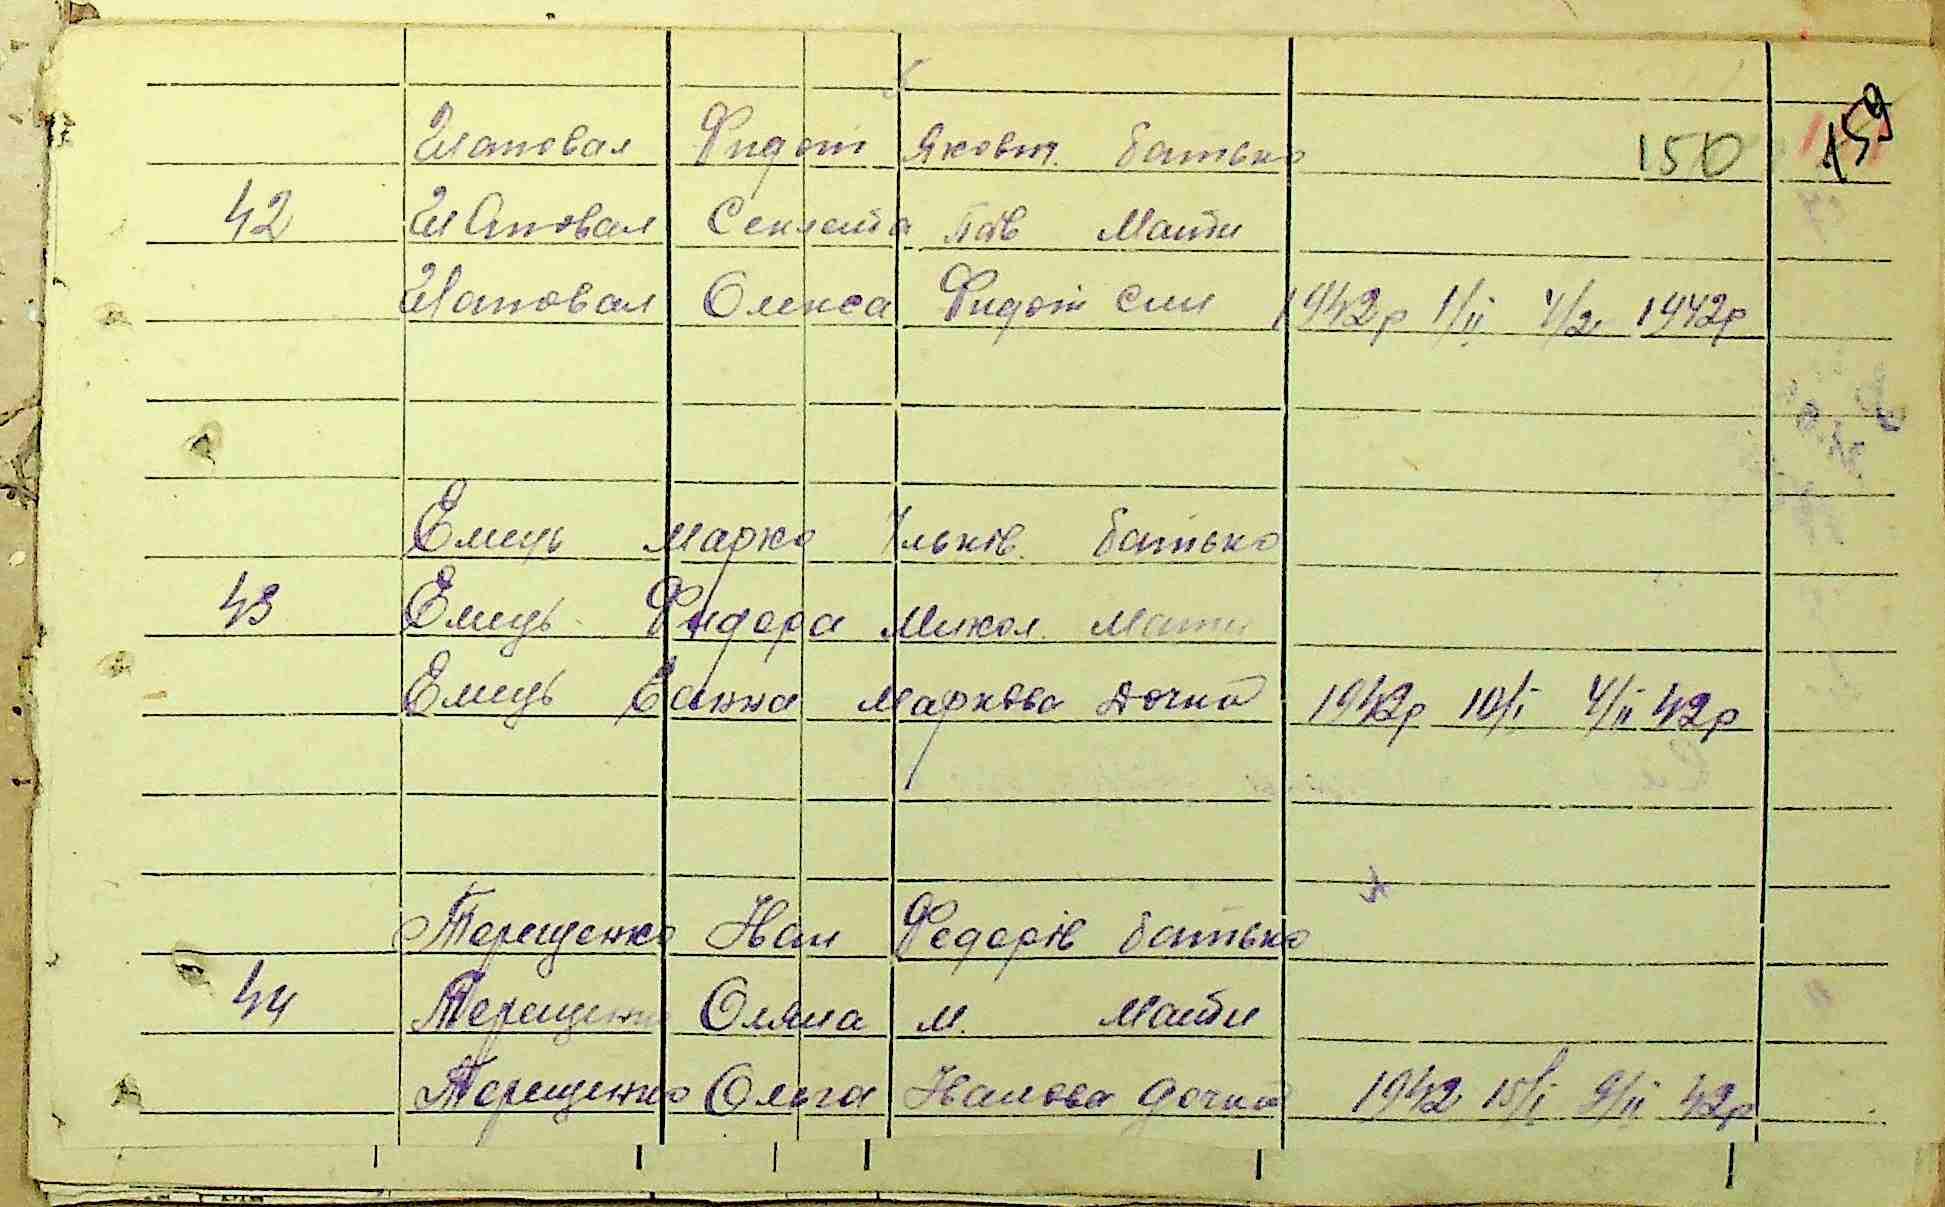 Шаповал Фидот Яковт. батько 150 159
42 Шаповал Секлета Пав Мати
Шаповал Олекса Фидот Син 1942р 1/ІІ 4/2 1942р
Емець Марко Ільків. батько
43 Емець Фидора Микол. Мати
Емець Ганна Маркова Дочка 1942р 10/І 4/ІІ 42р
Терещенко Іван Федорів батько
44 Терещенко Оляна М. Мати
Терещенко Ольга Іванова дочка 1942 15/І 9/ІІ 42р